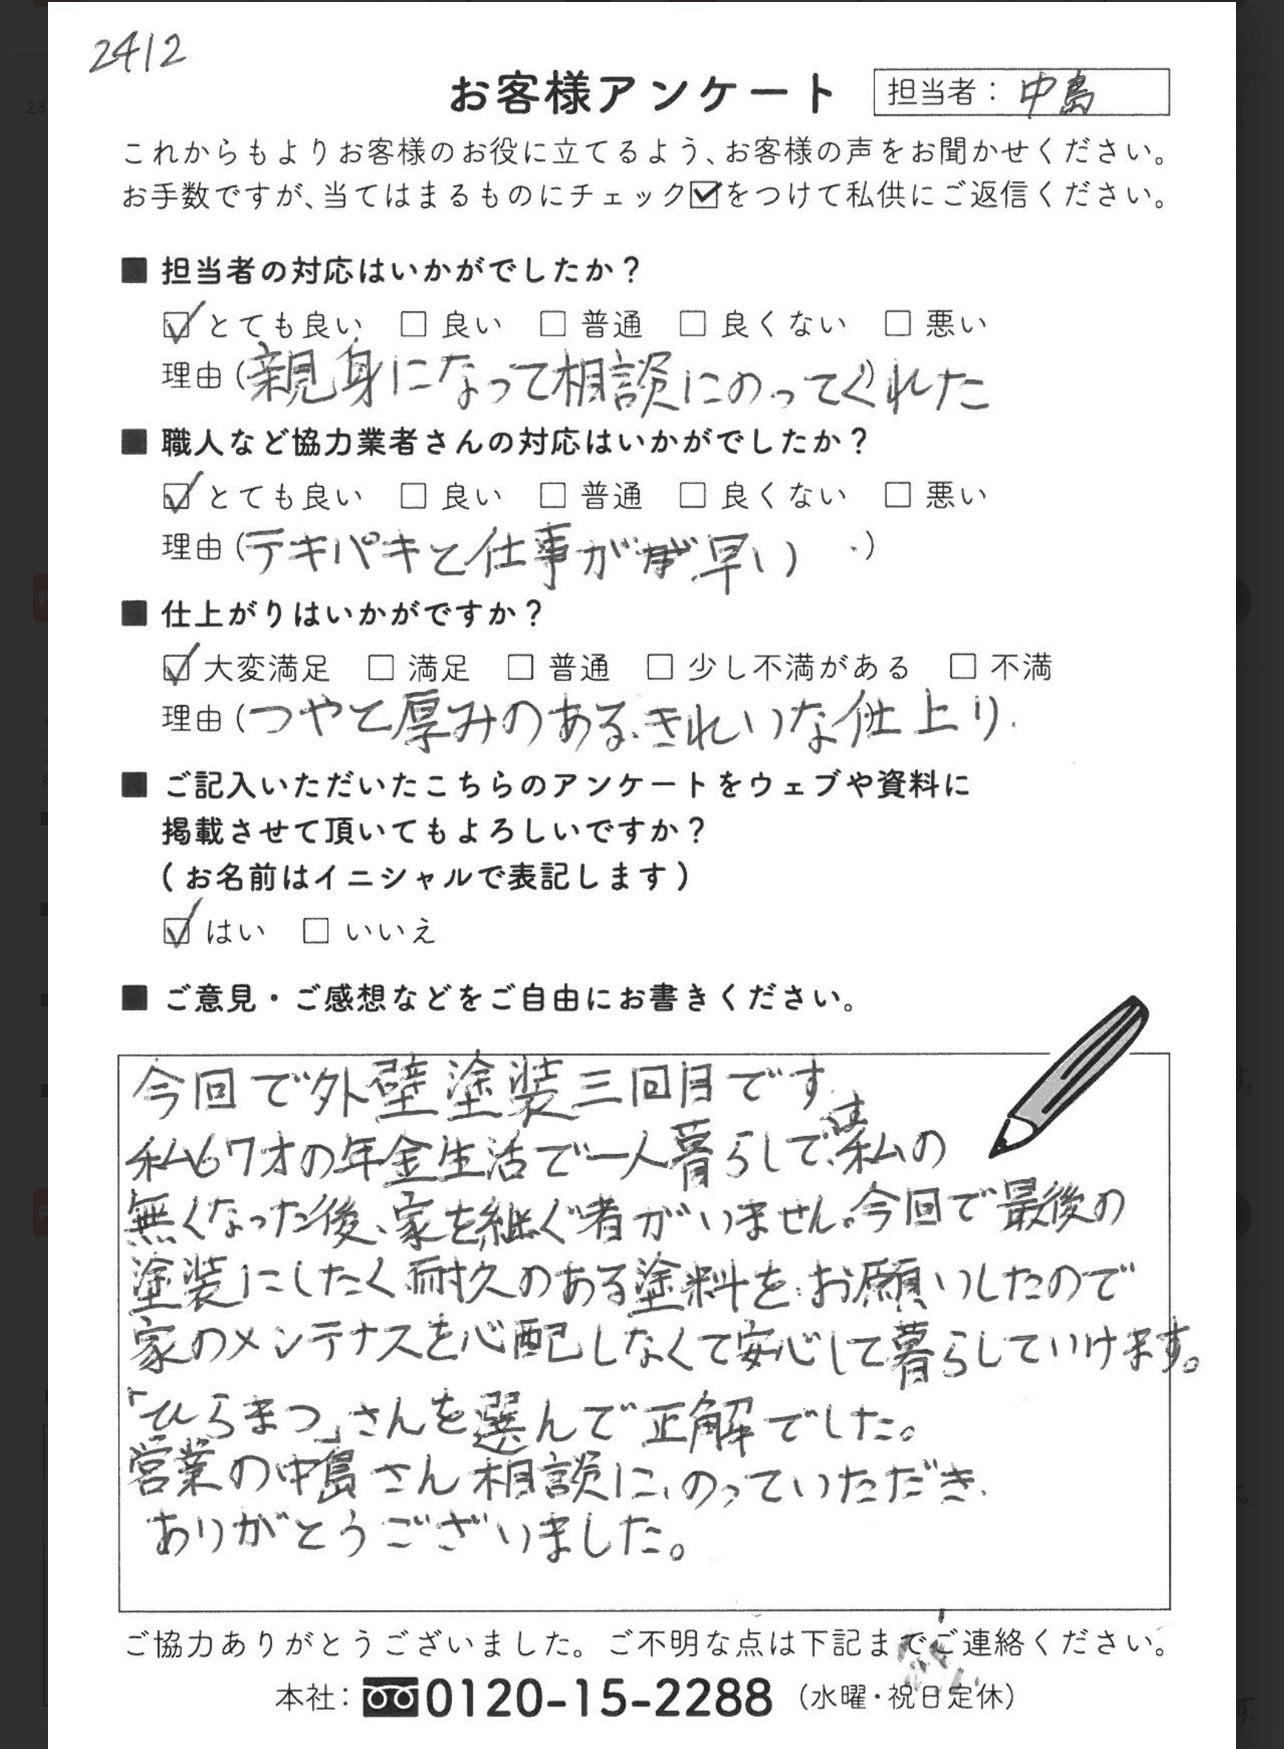 2412
お客様アンケート
担当者：中島
これからもよりお客様のお役に立てるよう、お客様の声をお聞かせください。
お手数ですが、当てはまるものにチェック☑をつけて私供にご返信ください。
■ 担当者の対応はいかがでしたか？
☑とても良い □良い □普通 □良くない □悪い
理由（親身になって相談にのってくれた）
■ 職人など協力業者さんの対応はいかがでしたか？
☑とても良い □良い □普通 □良くない □悪い
理由（テキパキと仕事が早い）
■ 仕上がりはいかがですか？
☑大変満足 □満足 □普通 □少し不満がある □不満
理由（つやと厚みのある、きれいな仕上り.
■ ご記入いただいたこちらのアンケートをウェブや資料に
掲載させて頂いてもよろしいですか？
（お名前はイニシャルで表記します）
☑はい □いいえ
■ ご意見・ご感想などをご自由にお書きください。
今回で外壁塗装三回目です
私67才の年金生活で一人暮らしです、私の
無くなった後、家を継ぐ者がいません。今回で最後の
塗装にしたく耐久のある塗料を、お願いしたので
家のメンテナスを心配しなくて安心して暮らしていけます。
「ひらまつ」さんを選んで正解でした。
営業の中島さん相談に、のっていただき、
ありがとうございました。
ご協力ありがとうございました。ご不明な点は下記までご連絡ください。
本社：0120-15-2288（水曜・祝日定休）